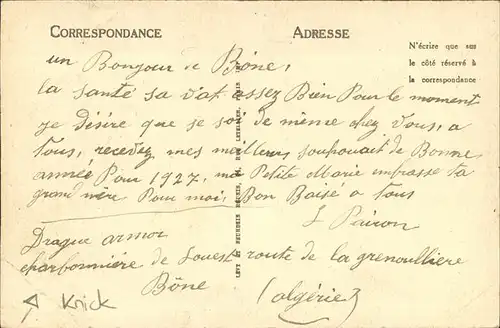 CORRESPONDANCE
ADRESSE
N'écrire que sur
le côté réservé à
la correspondance
un Bonjour de Bône,
la santé sa vat assez Bien Pour le moment
je désire que je soi de même chez vous, a
tous, recevez mes meilleurs souhouait de Bonne
année Pour 1927, ma Petite Marie imbrasse ta
grand mère Pour moi, Bon Baisé a tous
L Pairon
Drague armor
charbonnière de Louest route de la grenoullière
Bône (algérie)
Knick
LEVY ET NEURDEIN RÉUNIS